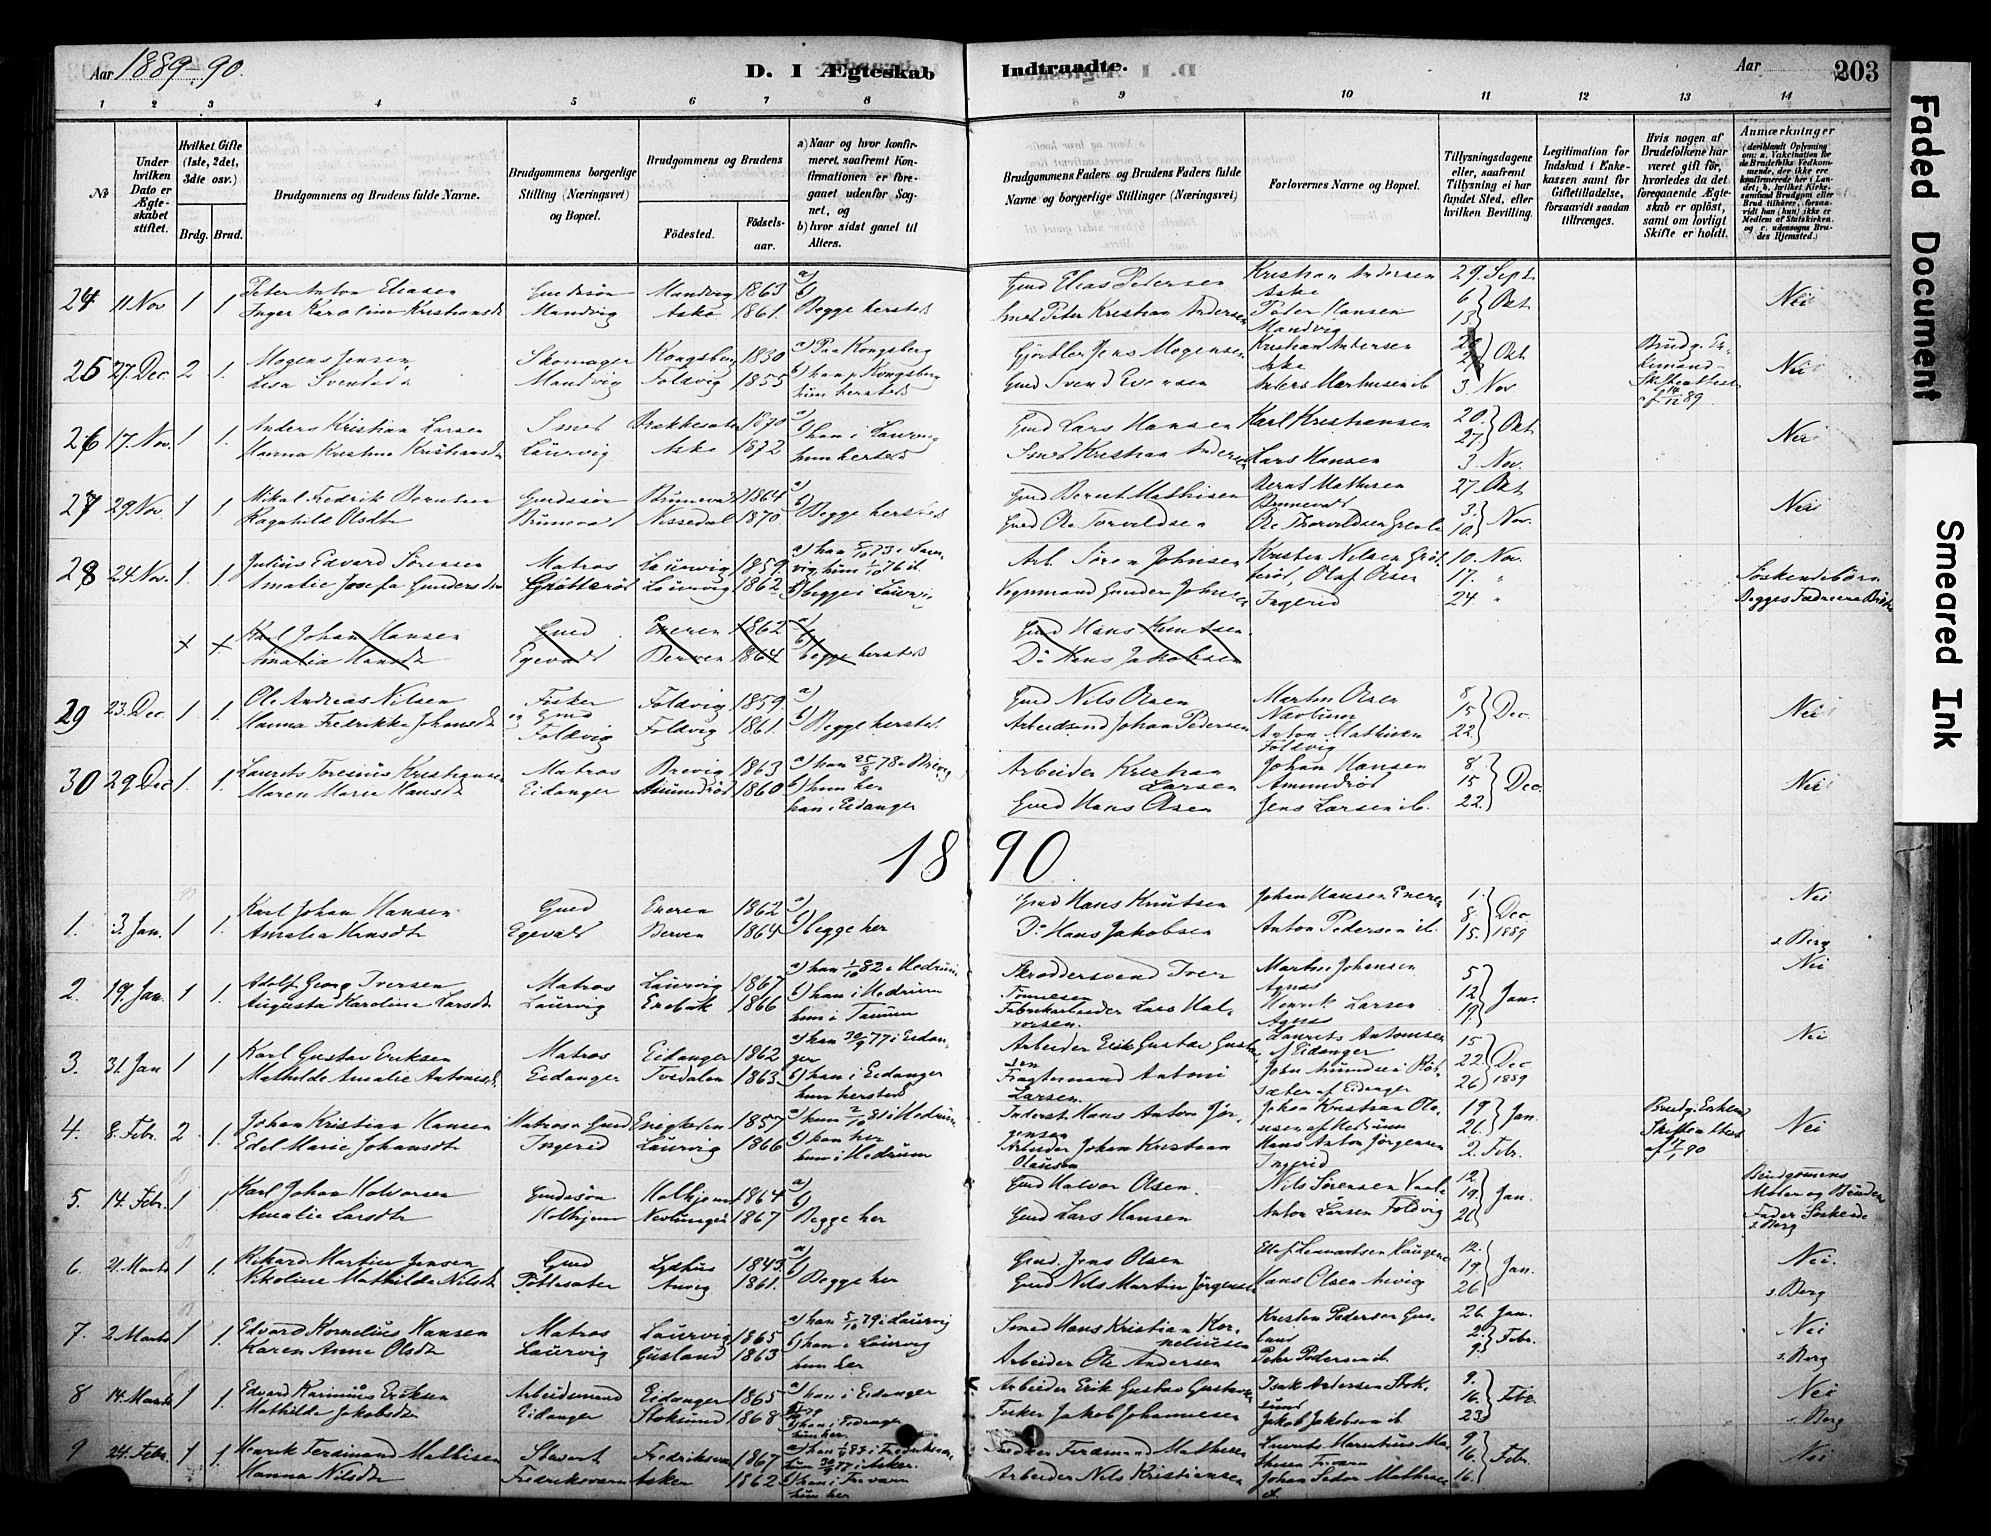 Aar 1889-90.
D. I Ægteskab Indtraadte.
Aar
203
1 2 3 4 5 6 7 8 9 10 11 12 13 14
№
Under hvilken Dato er Ægteskabet stiftet.
Hvilket Gifte (1ste, 2det, 3die osv.)
Brdg. Brud.
Brudgommens og Brudens fulde Navne.
Brudgommens borgerlige Stilling (Næringsvei) og Bopæl.
Brudgommens og Brudens
Fødested.
Fødselsaar.
a) Naar og hvor konfirmeret, saafremt Konfirmationen er foregaaet udenfor Sognet, og
b) hvor sidst gaaet til Alters.
Brudgommens Faders og Brudens Faders fulde Navne og borgerlige Stillinger (Næringsvei)
Forlovernes Navne og Bopæl.
Tillysningsdagene eller, saafremt Tillysning ei har fundet Sted, efter hvilken Bevilling.
Legitimation for Indskud i Enkekassen samt for Giftetilladelse, forsaavidt saadan tiltrænges.
Hvis nogen af Brudefolkene har været gift før, hvorledes da det foregaaende Ægteskab er opløst, samt om lovligt Skifte er holdt.
Anmærkninger
24 11 Nov 1 1. Peter Anton Eliasen Gaardsøn Mandvig 1863 a) Gmd Elias Pedersen Kristian Andersen 29. Sept
Inger Karoline Kristiansdt Mandvig Aske 1861 b) Begge hersteds Smed Peter Kristian Andersen Aske Peder Hansen Mandvig 6 13 Okt Nei
25 27. Dec 2 1. Mogens Jensen Skomager Kongsberg 1830 a) Paa Kongsberg Gjørtler Jens Mogensen Kristian Andersen Aske Okt
Svendsdt Mandvig Foldvig 1855 b) han i Kongsberg hun hersteds Gmd Svend Evensen 3 Nov. Nei
26 17. Nov. 1 1. Anders Kristian Larsen Smed 1870 a) Gmd Lars Hansen Karl Kristiansen 20. 27 Okt
Hanna Kristine Kristiansdt Laurvig Aske 1872 b) han i Laurvig hun hersteds Smed Kristian Andersen Lars Hansen 3 Nov. Nei
27 29 Nov. 1 1 Mikal Fredrik Berntsen Gaardsøn Brunevad 1864 a) Gmd Bernt Mathisen Bernt Mathisen Brunevad 27 Okt
Ragnhild Olsdt Brunevad Nissedal 1870 b) Begge hersteds Gmd Ole Torvildsen 3. 10 Nov. Nei
28 24 Nov. 1. 1. Julius Edvard Sørensen Matros Laurvig 1859. Arb. Søren Johnsen Kristen Nilsen 10. Nov.
Amalie Josefa Gundersdtr Grøtterød Laurvig 1862 b) begge i Laurvig Vognmand Gunder Johnsen Olaf Olsen Ingerid 17. " 24 " Søskendebørn
× × Karl Johan Hansen Gmd Eneren 1862 a) Gmd Hans Knutsen
Amalia Hansdt Egevald Berven 1864 b) begge hersteds Do Hans Jakobsen
29 23. Dec 1 1. Ole Andreas Nilsen Fisker og Gmd Foldvig 1859 a) Gmd Nils Olsen Martin Olsen 8
Hanna Fredrikke Johansdt Foldvig Foldvig 1861. b) Begge hersteds Arbeidsmd Johan Pedersen Anton Mathisen Foldvig 15 22 Dec. Nei
30 29 Dec 1. 1. Laurits Toresius Kristiansen Matros Brevig 1863 a) han 25/8 78 i Brevig Arbeider Kristian Larsen Johan Hansen Amundrød 8.
Maren Marie Hansdt Eidanger Amundrød 1860 b) hun her han i Eidanger Gmd Hans Olsen Jens Larsen ib. 15 22 Dec. Nei
1890
1. 3. Jan. 1 1. Karl Johan Hansen Gmd Eneren 1862 a) Gmd Hans Knutsen Johan Hansen Eneren 1. Nei
Amalia Hansdt Egevald Berven 1864 b) begge her Do Hans Jakobsen Anton Pedersen ib. 8. 15. Dec 1889 s. Berg
2. 19. Jan. 1 1. Adolf Georg Iversen Matros Laurvig 1867 a) han 1/10 82 i Hedrum Skræddersvend Iver Tønnesen Martin Johansen Agnes 5 Nei
Augusta Karoline Larsdt Laurvig Enebak 1866 b) han i Hedrum hun i Tanum Fabrikarbeider Lars Halvorsen. Henrik Larsen Agnes 12 19 Jan.
3. 31. Jan 1 1. Karl Gustav Eriksen Matros Eidanger 1862 a) han 30/9 77 i Eidanger Arbeider Erik Gustav Gustavsen Laurits Antonisen af Eidanger 15 Nei
Mathilde Amalie Antonisdt Eidanger Tvedalen 1863 b) han i Eidanger hun hersteds Fragtemand Antoni Larsen af Eidanger 22 26 Dec 1889
4. 8. Febr. 2 1. Johan Kristian Hansen Matros og Gmd Enigheden 1857 Inderst Hans Anton Jørgensen Johan Kristian Olausen af Hedrum 19 26. Jan. Brudg. Enkem. Skifteattest af 17/1 90
Edel Marie Johansdt Ingerid Laurvig 1866 b) han her hun i Hedrum Arbeider Johan Kristian Olausen Hans Anton Jørgensen Ingerid 2. Febr. Nei
5. 14. Febr. 1 1 Karl Johan Halvorsen Gaardsøn Holhjem 1864 a) Gmd Halvor Olsen. Nils Sørensen 12.
Amalie Larsdtr Holhjem Nevlungh 1867 b) Begge her Gmd Lars Hansen Anton Larsen Foldvig 19. 26 Jan. Brudgomens Moder og Brudens Fader Søskende s. Berg
6. 21. Marts 1 1. Rikard Martin Jensen Gmd 1843. a) Gmd. Jens Olsen 12. Nei.
Nikoline Mathilde Nilsdt Pøttesater Anvig 1861. b) Begge her Gmd Nils Martin Jørgensen Hans Olsen Anvig 19. 26 Jan. s. Berg
7. 2 Marts 1 1. Edvard Kornelius Hansen Matros Laurvig 1865 a) han 5/10 79 i Laurvig Smed Hans Kristian Korneliussen Kristen Pedersen Gusland 26. Jan. Nei
Karen Anne Olsdt Laurvig Gusland 1863 b) han i Laurvig hun her Arbeider Ole Andersen Peder Pedersen ib. 2. 9. Febr. s. Berg
8 14. Marts 1 1. Edvard Karinius Eriksen Arbeidsmand Eidanger 1865 a) han i Eidanger Arbeider Erik Gustav Gustavsen Isak Andersen Stoksund 9. Nei
Mathilde Jakobsdt Eidanger Stoksund 1868 b) han i Eidanger hun her. Fisker Jakob Johannesen Jakob Jakobsen ib 16. 23. Febr s. Berg
9 24. Febr. 1 1. Henrik Ferdinand Mathisen Stuert Fredriksvern 1867 Ferdinand Mathisen Laurits Marutius Mathisen Frværn 9. Nei
Hanna Nilsdt Fredriksværn Asker 1862 b) han i Frvarn hun her Arbeider Nils Kristiansen Johan Mathisen ib. 16. 16. Febr.
Faded Document
Smeared Ink